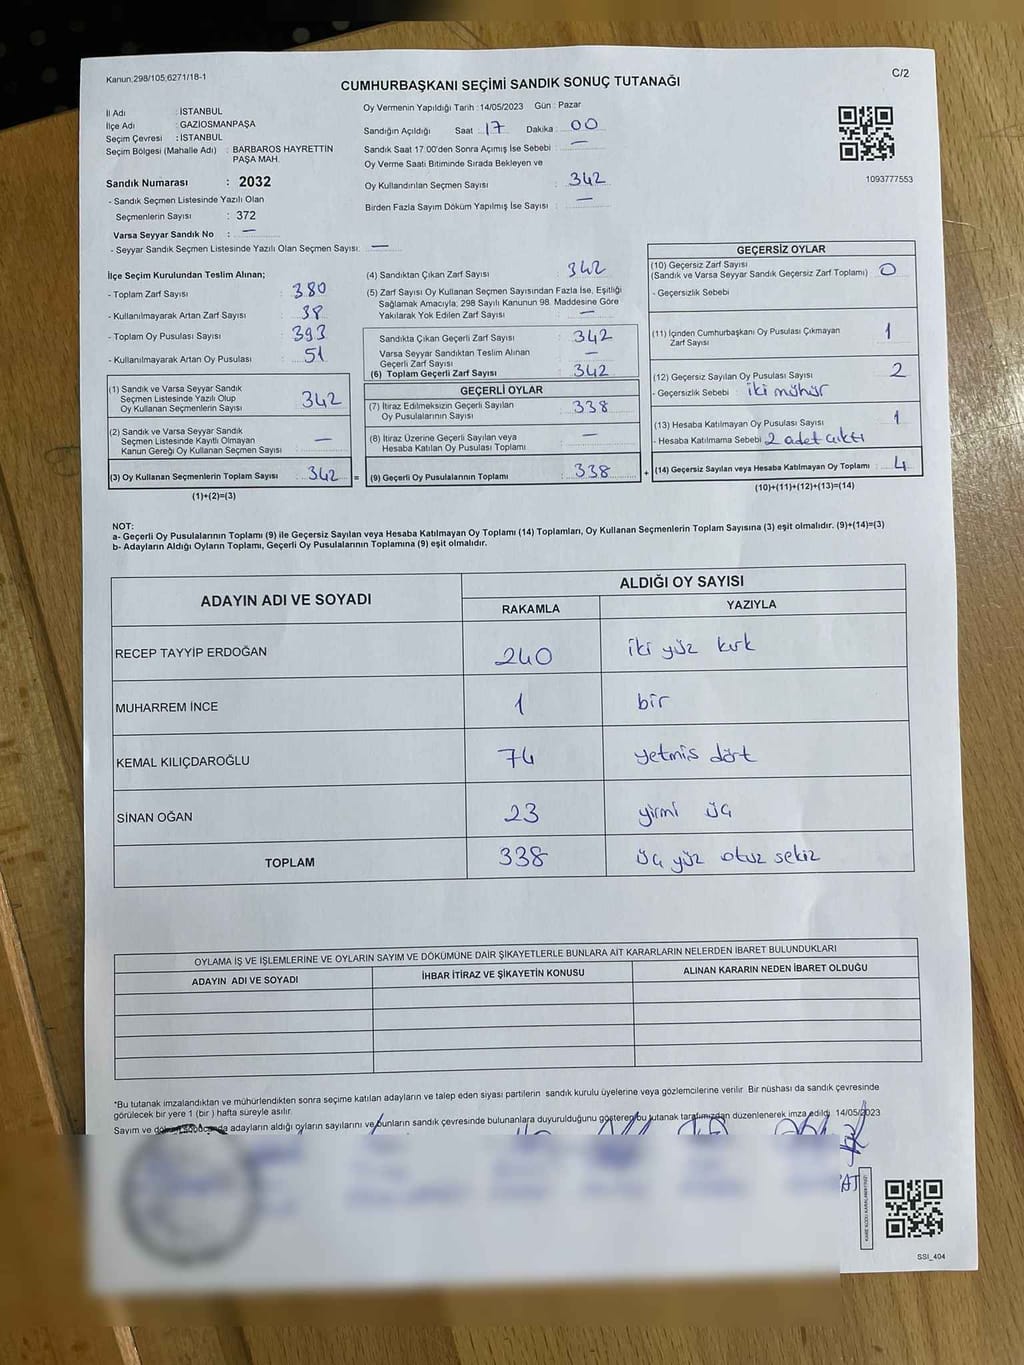 Kanun:298/105;6271/18-1
C/2
CUMHURBAŞKANI SEÇİMİ SANDIK SONUÇ TUTANAĞI
İl Adı : İSTANBUL
İlçe Adı : GAZİOSMANPAŞA
Seçim Çevresi : İSTANBUL
Seçim Bölgesi (Mahalle Adı) : BARBAROS HAYRETTİN
PAŞA MAH.
Sandık Numarası : 2032
- Sandık Seçmen Listesinde Yazılı Olan
Seçmenlerin Sayısı : 372
Varsa Seyyar Sandık No : —
- Seyyar Sandık Seçmen Listesinde Yazılı Olan Seçmen Sayısı: —
Oy Vermenin Yapıldığı Tarih :14/05/2023 Gün : Pazar
Sandığın Açıldığı Saat : 17 Dakika : 00
Sandık Saat 17:00'den Sonra Açımış İse Sebebi : —
Oy Verme Saati Bitiminde Sırada Bekleyen ve
Oy Kullandırılan Seçmen Sayısı : 342
Birden Fazla Sayım Döküm Yapılmış İse Sayısı : —
1093777553
İlçe Seçim Kurulundan Teslim Alınan;
- Toplam Zarf Sayısı : 380
- Kullanılmayarak Artan Zarf Sayısı : 38
- Toplam Oy Pusulası Sayısı : 393
- Kullanılmayarak Artan Oy Pusulası : 51
(1) Sandık ve Varsa Seyyar Sandık
Seçmen Listesinde Yazılı Olup
Oy Kullanan Seçmenlerin Sayısı : 342
(2) Sandık ve Varsa Seyyar Sandık
Seçmen Listesinde Kayıtlı Olmayan
Kanun Gereği Oy Kullanan Seçmen Sayısı : —
(3) Oy Kullanan Seçmenlerin Toplam Sayısı : 342 =
(1)+(2)=(3)
(4) Sandıktan Çıkan Zarf Sayısı : 342
(5) Zarf Sayısı Oy Kullanan Seçmen Sayısından Fazla İse, Eşitliği
Sağlamak Amacıyla; 298 Sayılı Kanunun 98. Maddesine Göre
Yakılarak Yok Edilen Zarf Sayısı : —
Sandıkta Çıkan Geçerli Zarf Sayısı : 342
Varsa Seyyar Sandıktan Teslim Alınan
Geçerli Zarf Sayısı : —
(6) Toplam Geçerli Zarf Sayısı : 342
GEÇERLİ OYLAR
(7) İtiraz Edilmeksizin Geçerli Sayılan
Oy Pusulalarının Sayısı : 338
(8) İtiraz Üzerine Geçerli Sayılan veya
Hesaba Katılan Oy Pusulası Toplamı : —
(9) Geçerli Oy Pusulalarının Toplamı : 338 +
GEÇERSİZ OYLAR
(10) Geçersiz Zarf Sayısı
(Sandık ve Varsa Seyyar Sandık Geçersiz Zarf Toplamı) : 0
- Geçersizlik Sebebi
(11) İçinden Cumhurbaşkanı Oy Pusulası Çıkmayan
Zarf Sayısı : 1
(12) Geçersiz Sayılan Oy Pusulası Sayısı : 2
- Geçersizlik Sebebi : iki mühür
(13) Hesaba Katılmayan Oy Pusulası Sayısı : 1
- Hesaba Katılmama Sebebi : 2 adet çıktı
(14) Geçersiz Sayılan veya Hesaba Katılmayan Oy Toplamı : 4
(10)+(11)+(12)+(13)=(14)
NOT:
a- Geçerli Oy Pusulalarının Toplamı (9) ile Geçersiz Sayılan veya Hesaba Katılmayan Oy Toplamı (14) Toplamları, Oy Kullanan Seçmenlerin Toplam Sayısına (3) eşit olmalıdır. (9)+(14)=(3)
b- Adayların Aldığı Oyların Toplamı, Geçerli Oy Pusulalarının Toplamına (9) eşit olmalıdır.
ADAYIN ADI VE SOYADI
ALDIĞI OY SAYISI
RAKAMLA YAZIYLA
RECEP TAYYİP ERDOĞAN 240 iki yüz kırk
MUHARREM İNCE 1 bir
KEMAL KILIÇDAROĞLU 74 yetmis dört
SİNAN OĞAN 23 yirmi üç
TOPLAM 338 üç yüz otuz sekiz
OYLAMA İŞ VE İŞLEMLERİNE VE OYLARIN SAYIM VE DÖKÜMÜNE DAİR ŞİKAYETLERLE BUNLARA AİT KARARLARIN NELERDEN İBARET BULUNDUKLARI
ADAYIN ADI VE SOYADI İHBAR İTİRAZ VE ŞİKAYETİN KONUSU ALINAN KARARIN NEDEN İBARET OLDUĞU
*Bu tutanak imzalandıktan ve mühürlendikten sonra seçime katılan adayların ve talep eden siyasi partilerin sandık kurulu üyelerine veya gözlemcilerine verilir. Bir nüshası da sandık çevresinde
görülecek bir yere 1 (bir ) hafta süreyle asılır.
Sayım ve döküm sonucunda adayların aldığı oyların sayılarını ve bunların sandık çevresinde bulunanlara duyurulduğunu gösteren bu tutanak tarafımızdan düzenlenerek imza edildi. 14/05/2023
SSI_404